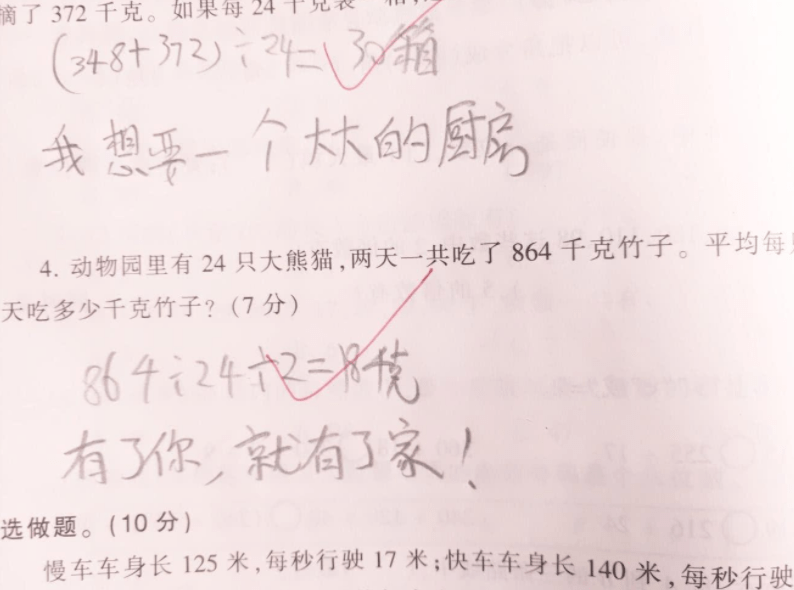 摘了 372 千克。如果每 24 千克装一箱,
(348+372)÷24=30箱
我想要一个大大的厨房
4. 动物园里有 24 只大熊猫,两天一共吃了 864 千克竹子。平均每
天吃多少千克竹子?(7 分)
864÷24÷2=18千克
有了你,就有了家!
选做题。(10 分)
慢车车身长 125 米,每秒行驶 17 米;快车车身长 140 米,每秒行驶